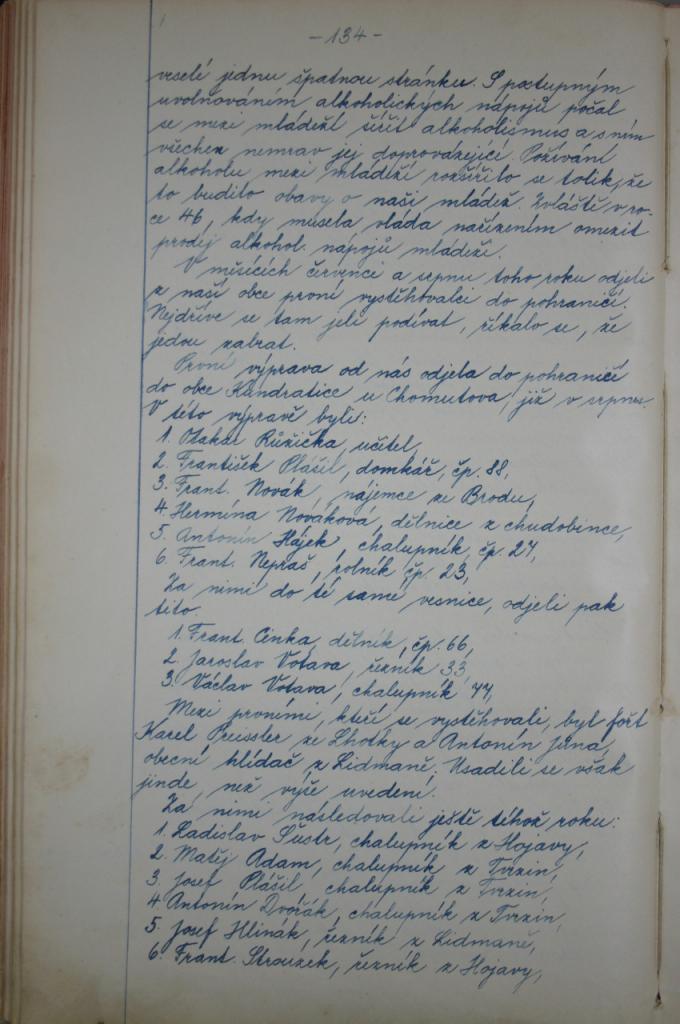 - 134 -
veselí jednu špatnou stránku. S postupným
uvolňováním alkoholických nápojů počal
se mezi mládeží šířit alkoholismus a s ním
všechen nemrav jej doprovázející. Požívání
alkoholu mezi mládeží rozšířilo se tolik, že
to budilo obavy o naši mládež. Zvláště v ro-
ce 46, kdy musela vláda nařízením omezit
prodej alkohol. nápojů mládeži.
V měsících červenci a srpnu toho roku odjeli
z naší obce první vystěhovalci do pohraničí.
Nejdříve se tam jeli podívat, říkalo se, že
jedou zabrat.
První výprava od nás odjela do pohraničí
do obce Kundratice u Chomutova, již v srpnu.
V této výpravě byli:
1. Otakar Růžička, učitel,
2. František Plášil, domkář, čp. 88,
3. Frant. Novák, nájemce ze Brodu,
4. Hermína Nováková, dělnice z chudobince,
5. Antonín Hájek, chalupník, čp. 27,
6. Frant. Nepraš, rolník čp. 23,
Za nimi do té samé vesnice, odjeli pak
tito.
1. Frant. Cinka, dělník, čp. 66,
2. Jaroslav Votava, řezník 33,
3. Václav Votava, chalupník 77,
Mezi prvními, kteří se vystěhovali, byl fořt
Karel Preissler ze Lhotky a Antonín Jůna,
obecní hlídač z Lidmaně. Usadili se však
jinde, než výše uvedení.
Za nimi následovali ještě téhož roku:
1. Ladislav Šustr, chalupník z Hojavy,
2. Matěj Adam, chalupník z Tvrzin,
3. Josef Plášil, chalupník z Tvrzin,
4 Antonín Dvořák, chalupník z Tvrzin,
5. Josef Hlinák, řezník z Lidmaně,
6. Frant. Strouzek, řezník z Hojavy,